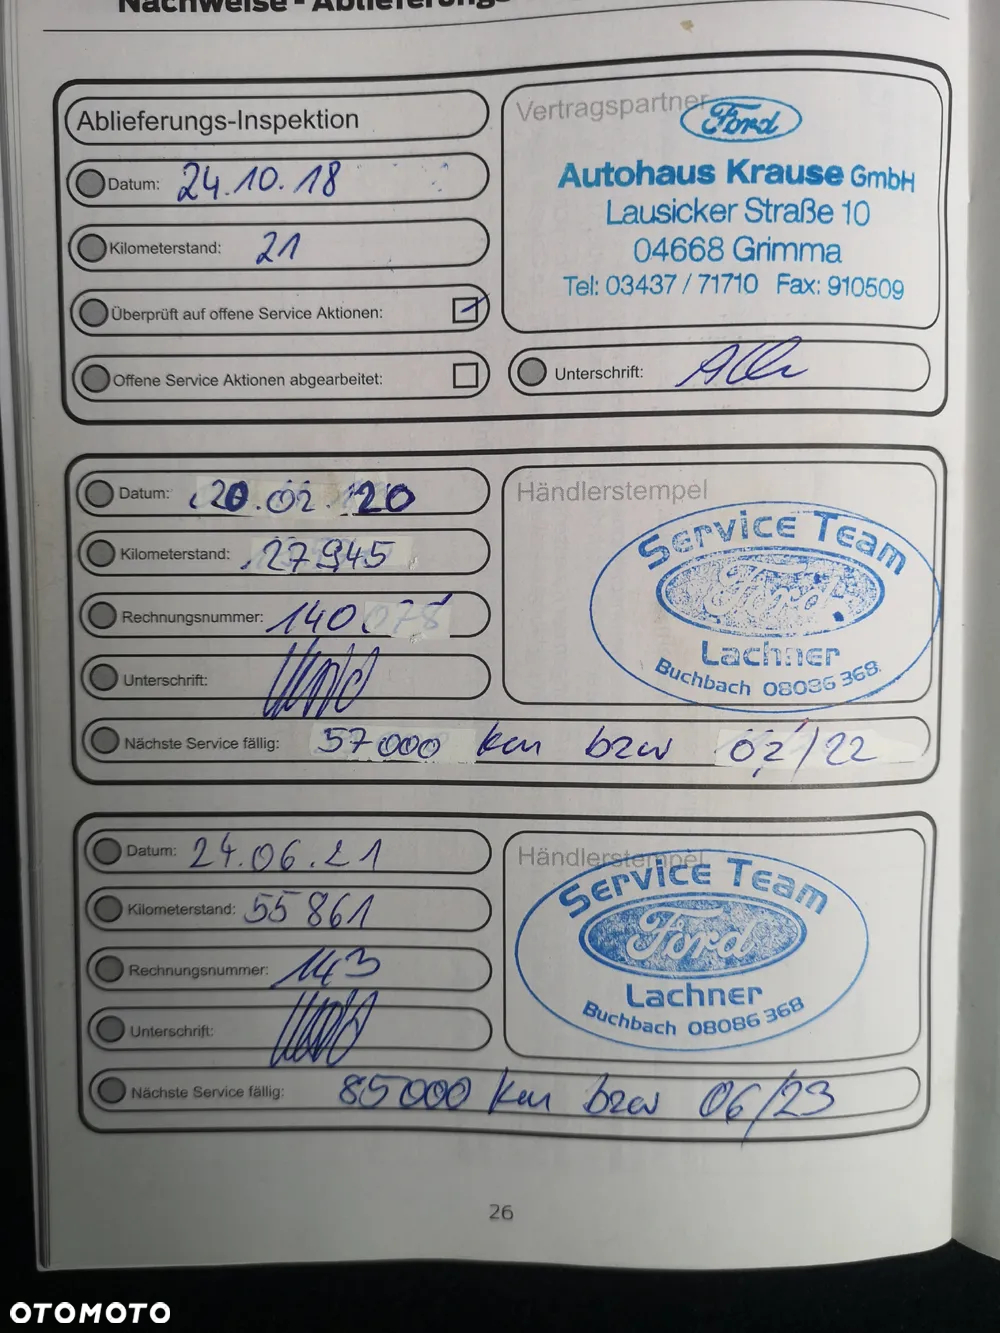 Nachweise - Ablieferungs
Ablieferungs-Inspektion
Datum: 24.10.18
Kilometerstand: 21
Überprüft auf offene Service Aktionen:
Offene Service Aktionen abgearbeitet:
Vertragspartner
Ford
Autohaus Krause GmbH
Lausicker Straße 10
04668 Grimma
Tel: 03437 / 71710 Fax: 910509
Unterschrift:
Datum: 20.02.20
Kilometerstand: 27945
Rechnungsnummer: 140078
Unterschrift:
Händlerstempel
Service Team
Ford
Lachner
Buchbach 08086 368
Nächste Service fällig: 57000 km bzw 02/22
Datum: 24.06.21
Kilometerstand: 55861
Rechnungsnummer: 143
Unterschrift:
Händlerstempel
Service Team
Ford
Lachner
Buchbach 08086 368
Nächste Service fällig: 85000 km bzw 06/23
26
OTOMOTO